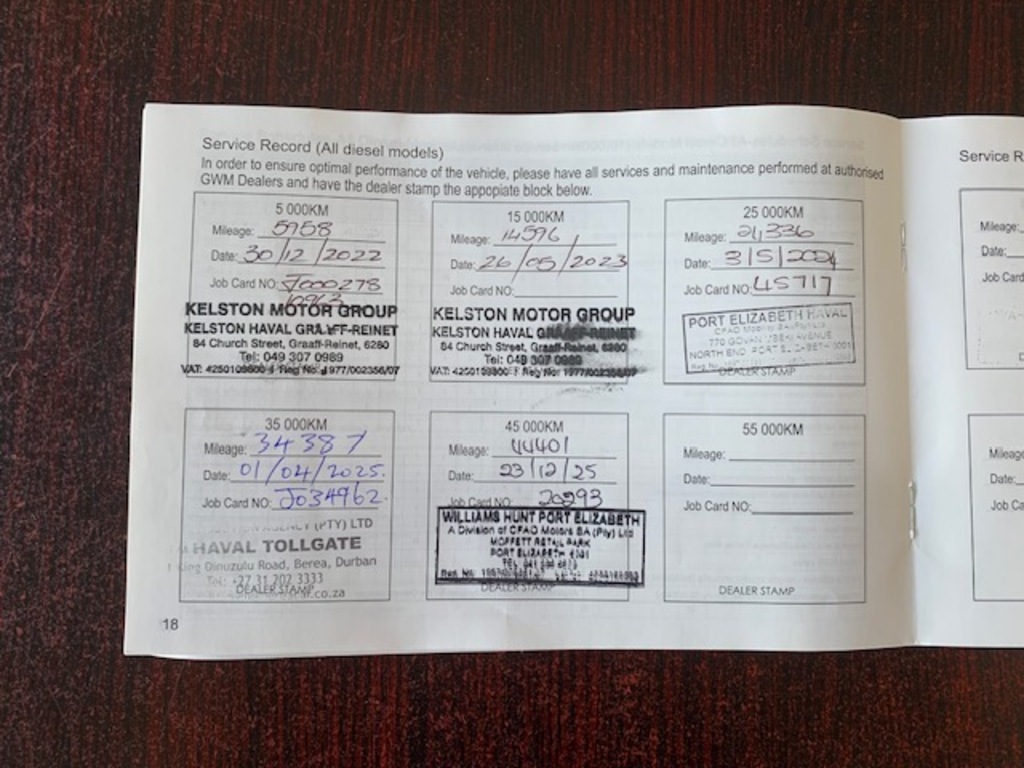 Service Record (All diesel models)
In order to ensure optimal performance of the vehicle, please have all services and maintenance performed at authorised
GWM Dealers and have the dealer stamp the appopiate block below.
5 000KM
Mileage: 5958
Date: 30/12/2022
Job Card NO: J000278
10963
KELSTON MOTOR GROUP
KELSTON HAVAL GRAAFF-REINET
84 Church Street, Graaff-Reinet, 6280
Tel: 049 307 0989
VAT: 4250109800 Reg No: 1977/002356/07
15 000KM
Mileage: 14596
Date: 26/05/2023
Job Card NO:
KELSTON MOTOR GROUP
KELSTON HAVAL GRAAFF-REINET
84 Church Street, Graaff-Reinet, 6280
Tel: 049 307 0989
Reg No: 1977/002356/07
25 000KM
Mileage: 24336
Date: 3/5/2024
Job Card NO: 45717
PORT ELIZABETH HAVAL
770 GOVAN MBEKI AVENUE
NORTH END PORT ELIZABETH 6001
DEALER STAMP
35 000KM
Mileage: 34387
Date: 01/04/2025.
Job Card NO: J034962
(PTY) LTD
HAVAL TOLLGATE
King Dinuzulu Road, Berea, Durban
Tel: +27 31 202 3333
DEALER STAMP
.co.za
45 000KM
Mileage: 44401
Date: 23/12/25
Job Card NO: 20293
WILLIAMS HUNT PORT ELIZABETH
A Division of CFAO Motors SA (Pty) Ltd
MOFFETT RETAIL PARK
PORT ELIZABETH
DEALER STAMP
55 000KM
Mileage:
Date:
Job Card NO:
DEALER STAMP
18
Service R
Mileage:
Date:
Job Card
Mileage
Date:
Job Ca